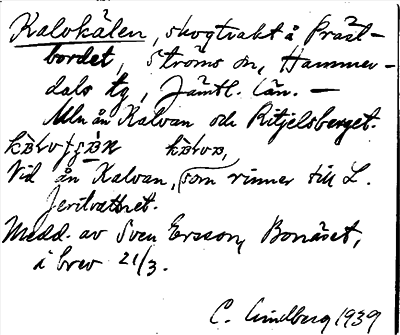 Kalvkälen, skogtrakt å Präst-
bordet, Ströms sn, Hammer-
dals tg, Jämtl. län. —
Mln ån Kalvan och Ritjelsberget.
Vid ån Kalvan, som rinner till L.
Jeritvattnet.
Medd. av Sven Ersson, Bonäset,
i brev 21/3.
C. Lindberg 1939